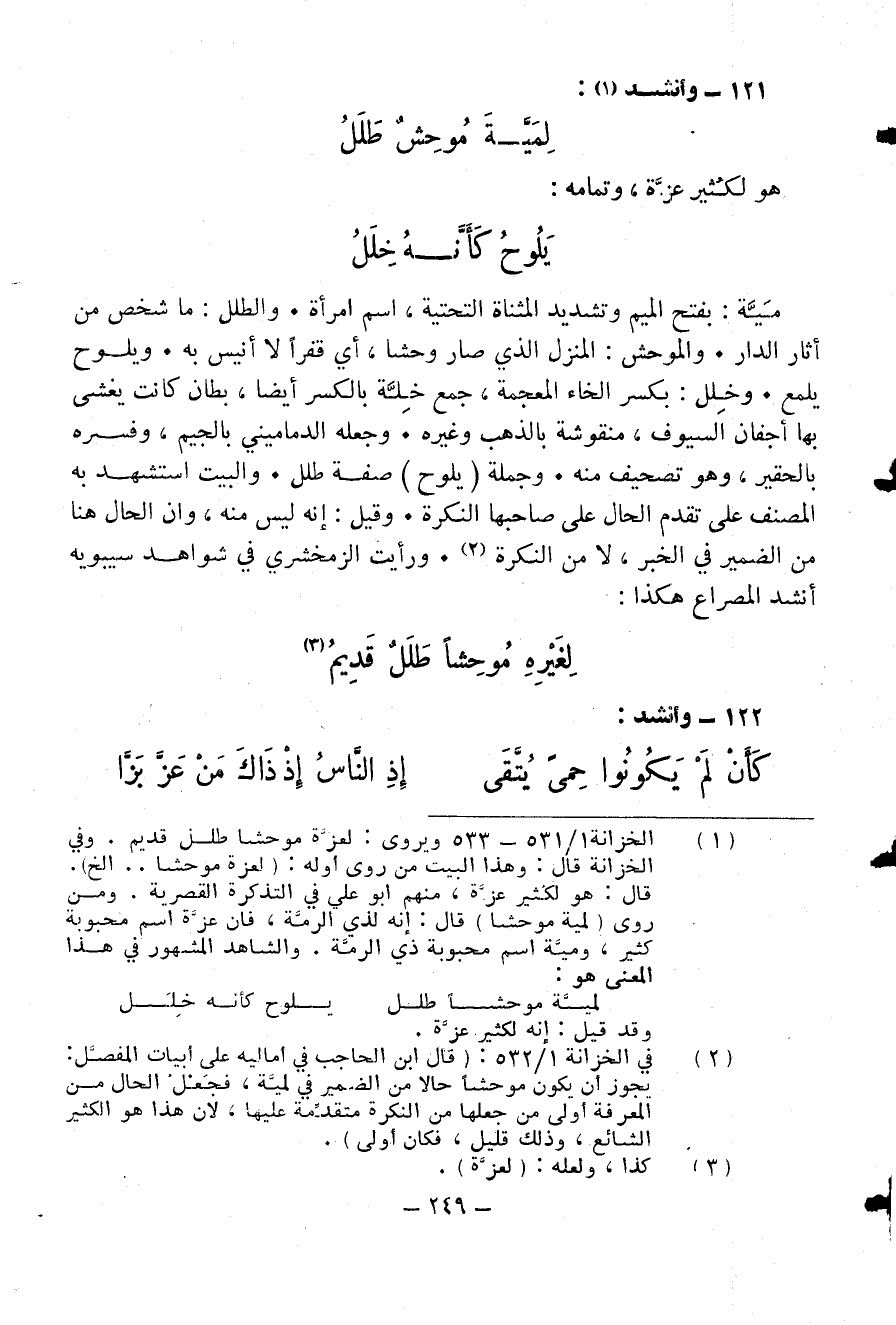 ١٢١ – وأنشد (١) :
لِمَيَّةَ مُوحِشٌ طَلَلُ
هو لكُثير عزَّة ، وتمامه :
يَلُوحُ كَأَنَّهُ خِلَلُ
مَيَّة : بفتح الميم وتشديد المثناة التحتية ، اسم امرأة • والطلل : ما شخص من
أثار الدار • والموحش : المنزل الذي صار وحشا ، أي قفراً لا أنيس به • ويلوح
يلمع • وخِلل : بكسر الخاء المعجمة ، جمع خِلَّة بالكسر أيضا ، بطان كانت يغشى
بها أجفان السيوف ، منقوشة بالذهب وغيره • وجعله الدماميني بالجيم ، وفسره
بالحقير ، وهو تصحيف منه • وجملة ( يلوح ) صفة طلل • والبيت استشهد به
المصنف على تقدم الحال على صاحبها النكرة • وقيل : إنه ليس منه ، وان الحال هنا
من الضمير في الخبر ، لا من النكرة (٢) • ورأيت الزمخشري في شواهد سيبويه
أنشد المصراع هكذا :
لِغَيْرِهِ مُوحِشاً طَلَلٌ قَدِيمُ (٣)
١٢٢ – وأنشد :
كَأَنْ لَمْ يَكُونُوا حِمىً يُتَّقَى إِذِ النَّاسُ إِذْ ذَاكَ مَنْ عَزَّ بَزَّا
(١) الخزانة ٥٣١/١ – ٥٣٣ ويروى : لعزَّة موحشا طلل قديم . وفي
الخزانة قال : وهذا البيت من روى أوله : ( لعزة موحشا . . الخ) .
قال : هو لكثير عزَّة ، منهم ابو علي في التذكرة القصرية . ومن
روى ( لمية موحشا ) قال : إنه لذي الرمَّة ، فان عزَّة اسم محبوبة
كثير ، وميَّة اسم محبوبة ذي الرمَّة . والشاهد المشهور في هذا
المعنى هو :
لميَّة موحشاً طلل يلوح كأنه خِلَل
وقد قيل : إنه لكثير عزَّة .
(٢) في الخزانة ٥٣٢/١ : ( قال ابن الحاجب في أماليه على أبيات المفصَّل:
يجوز أن يكون موحشاً حالا من الضمير في لميَّة ، فجَعْلُ الحال من
المعرفة أولى من جعلها من النكرة متقدِّمة عليها ، لان هذا هو الكثير
الشائع ، وذلك قليل ، فكان أولى ) .
(٣) كذا ، ولعله : ( لعزَّة ) .
– ٢٤٩ –